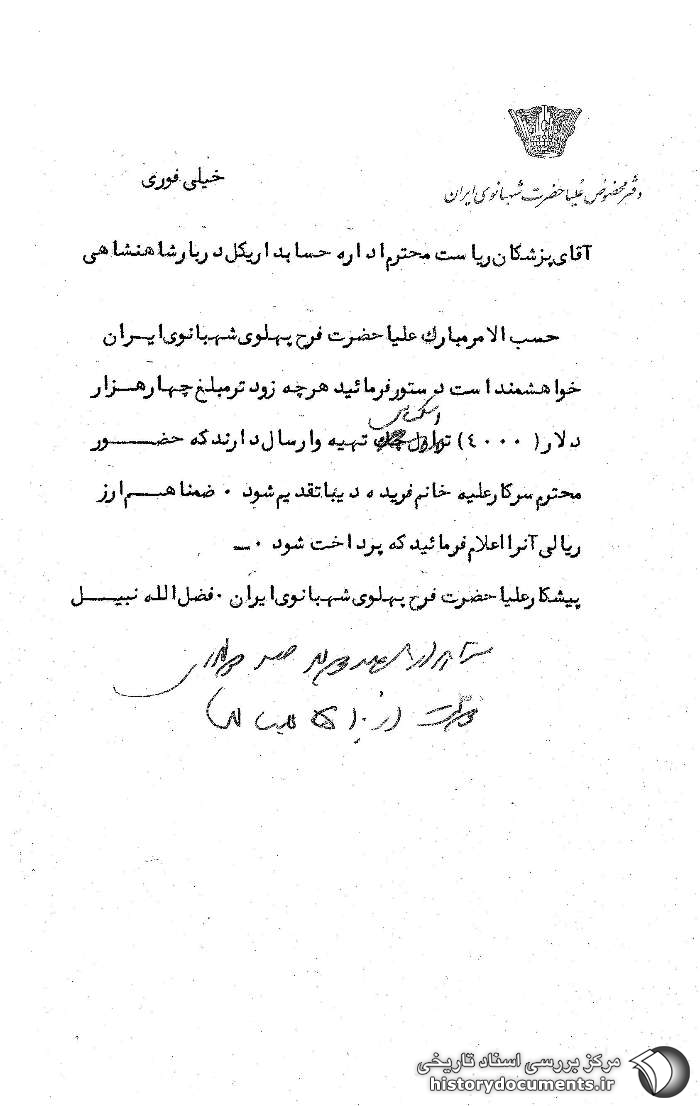 دفتر مخصوص علیاحضرت شهبانوی ایران
خیلی فوری
آقای پزشکان ریاست محترم اداره حسابداری کل دربار شاهنشاهی
حسب الامر مبارک علیا حضرت فرح پهلوی شهبانوی ایران
خواهشمند است دستور فرمائید هرچه زود تر مبلغ چهار هزار
اسکناس
دلار (٤٠٠٠) تهیه و ارسال دارند که حضور
محترم سرکار علیه خانم فریده دیبا تقدیم شود ٠ ضمنا هم ارز
ریالی آنرا اعلام فرمائید که پرداخت شود ٠ــ
پیشکار علیا حضرت فرح پهلوی شهبانوی ایران ٠ فضل الله نبیل
مرکز بررسی اسناد تاریخی
historydocuments.ir